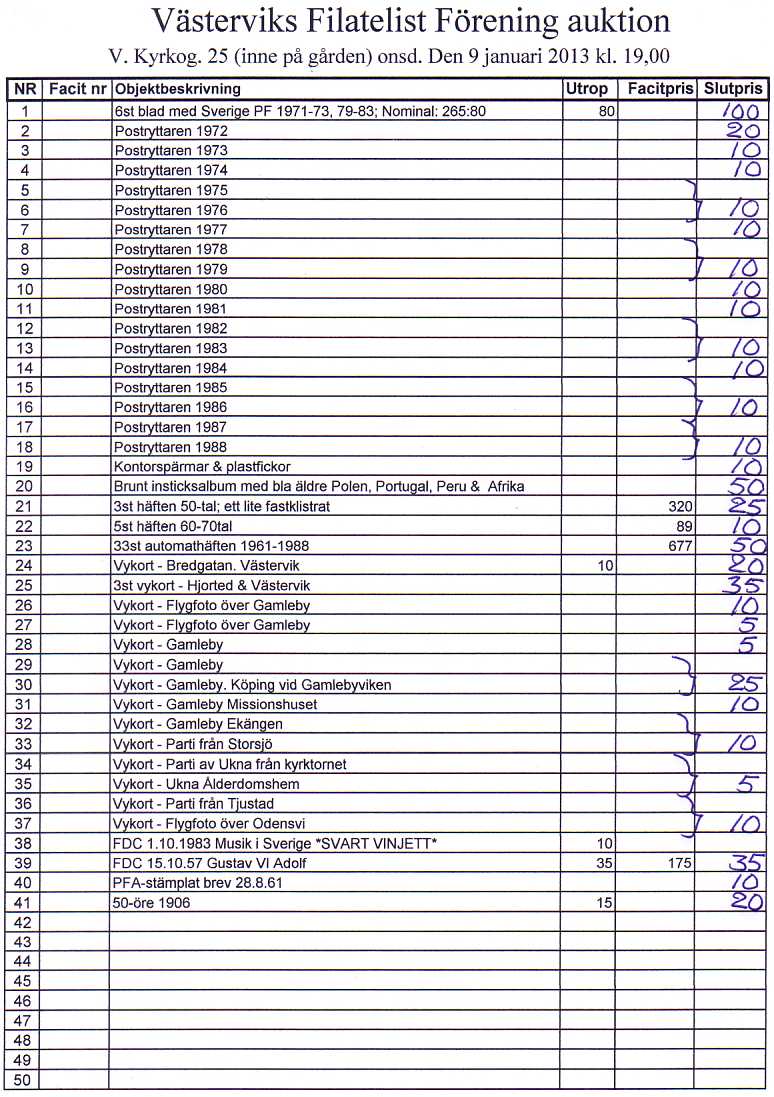 Västerviks Filatelist Förening auktion
V. Kyrkog. 25 (inne på gården) onsd. Den 9 januari 2013 kl. 19,00
NR Facit nr Objektbeskrivning Utrop Facitpris Slutpris
1 6st blad med Sverige PF 1971-73, 79-83; Nominal: 265:80 80 100
2 Postryttaren 1972 20
3 Postryttaren 1973 10
4 Postryttaren 1974 10
5 Postryttaren 1975
6 Postryttaren 1976 10
7 Postryttaren 1977 10
8 Postryttaren 1978
9 Postryttaren 1979 10
10 Postryttaren 1980 10
11 Postryttaren 1981 10
12 Postryttaren 1982
13 Postryttaren 1983 10
14 Postryttaren 1984 10
15 Postryttaren 1985
16 Postryttaren 1986 10
17 Postryttaren 1987
18 Postryttaren 1988 10
19 Kontorspärmar & plastfickor 10
20 Brunt insticksalbum med bla äldre Polen, Portugal, Peru & Afrika 50
21 3st häften 50-tal; ett lite fastklistrat 320 25
22 5st häften 60-70tal 89 10
23 33st automathäften 1961-1988 677 50
24 Vykort - Bredgatan. Västervik 10 20
25 3st vykort - Hjorted & Västervik 35
26 Vykort - Flygfoto över Gamleby 10
27 Vykort - Flygfoto över Gamleby 5
28 Vykort - Gamleby 5
29 Vykort - Gamleby
30 Vykort - Gamleby. Köping vid Gamlebyviken 25
31 Vykort - Gamleby Missionshuset 10
32 Vykort - Gamleby Ekängen
33 Vykort - Parti från Storsjö 10
34 Vykort - Parti av Ukna från kyrktornet
35 Vykort - Ukna Ålderdomshem 5
36 Vykort - Parti från Tjustad
37 Vykort - Flygfoto över Odensvi 10
38 FDC 1.10.1983 Musik i Sverige *SVART VINJETT* 10
39 FDC 15.10.57 Gustav VI Adolf 35 175 35
40 PFA-stämplat brev 28.8.61 10
41 50-öre 1906 15 20
42
43
44
45
46
47
48
49
50